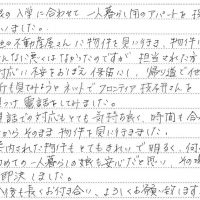 の入学に合わせて 一人暮らし用のアパートを探
いました。
の不動産屋さんに物件を見に行き、物件
んなに悪くはなかったのですが 担当された方
対応に不安をおぼえ保留にし、帰り道で他
も見てみようと ネットで フロンティア 技
って電話をしてみました。
電話での対応もとても気持ち良く、時間も
からそのまま 物件を見に行きました。
案内された物件もとてもきれいで明るく、何
めての一人暮らしの娘も安心だと思い、その
即決しました。
後も長くお付合い、よろしくお願い致します